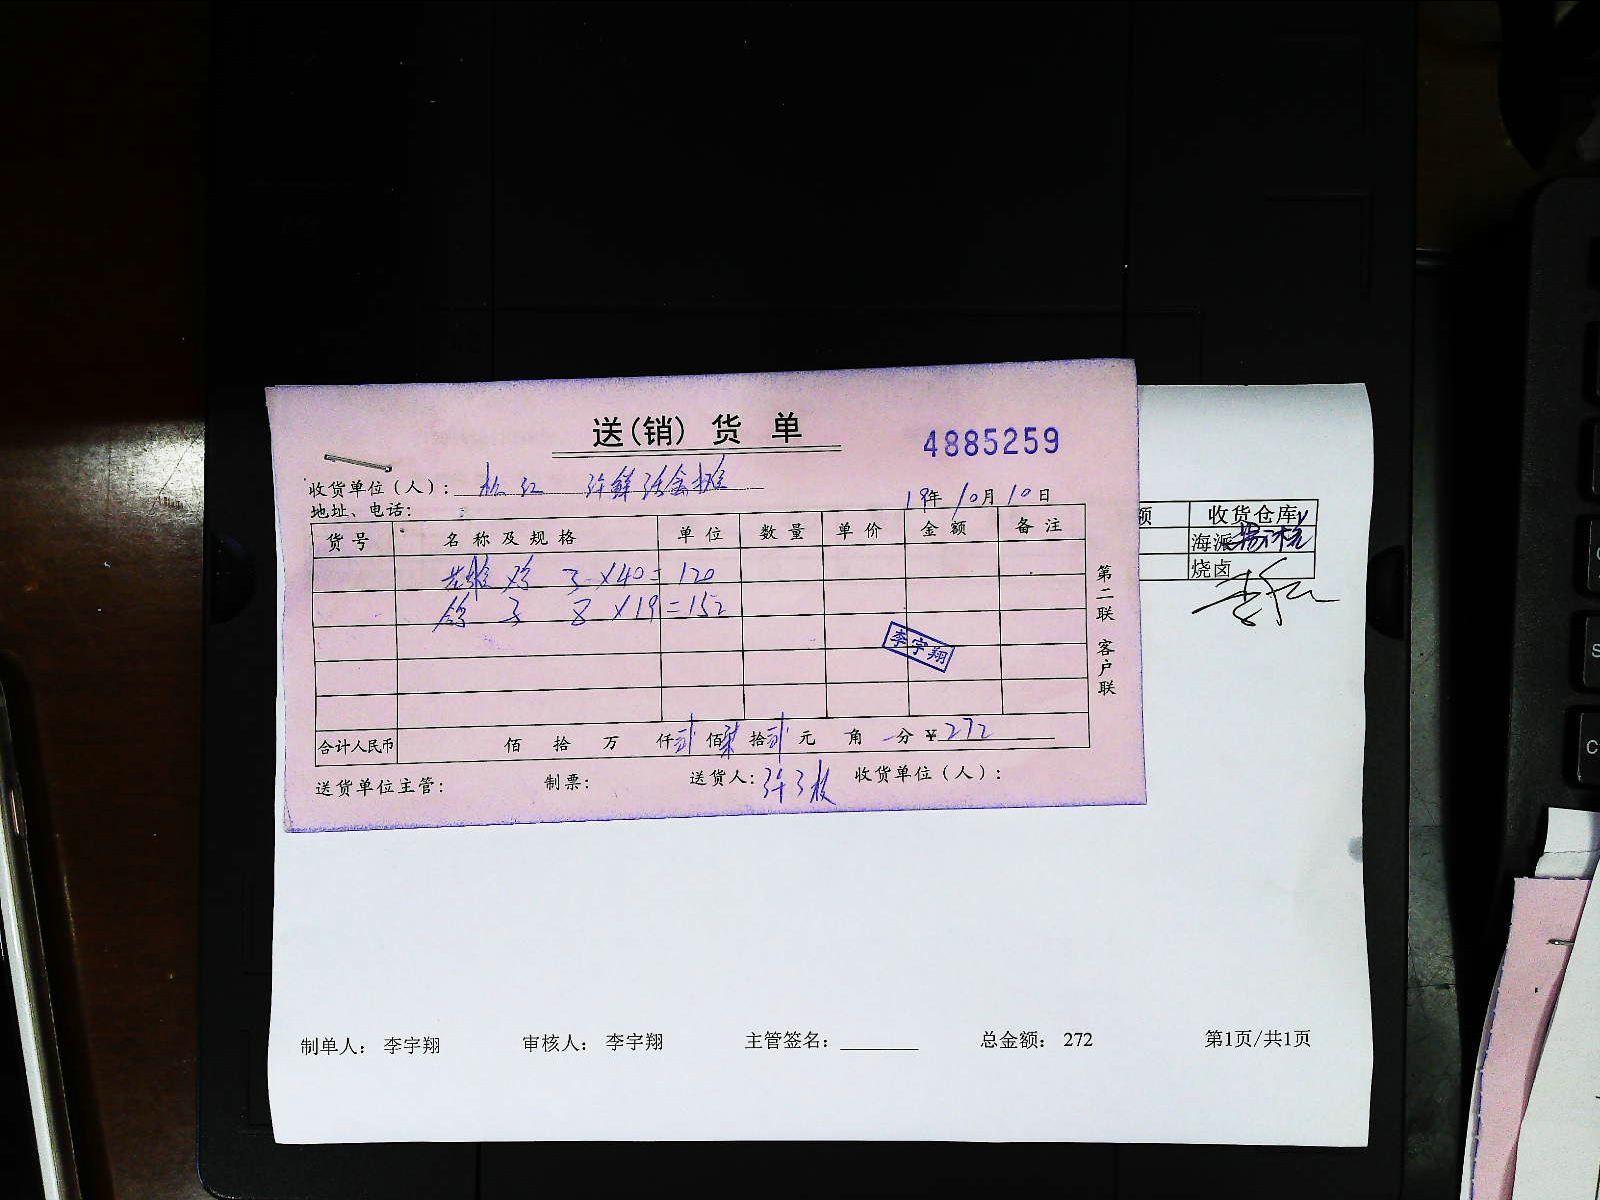 送(销)货单
4885259
收货单位(人): 松江 许鲜活禽摊
地址、电话:
19年10月10日
货号 名称及规格 单位 数量 单价 金额 备注
鸡 3×40=120
鸽子 8×19=152
李宇翔
合计人民币 佰 拾 万 仟贰佰柒拾贰元 角 分 ¥272
送货单位主管: 制票: 送货人: 收货单位(人):
第二联 客户联
额 收货仓库
海派
烧卤
制单人: 李宇翔 审核人: 李宇翔 主管签名: 总金额: 272 第1页/共1页